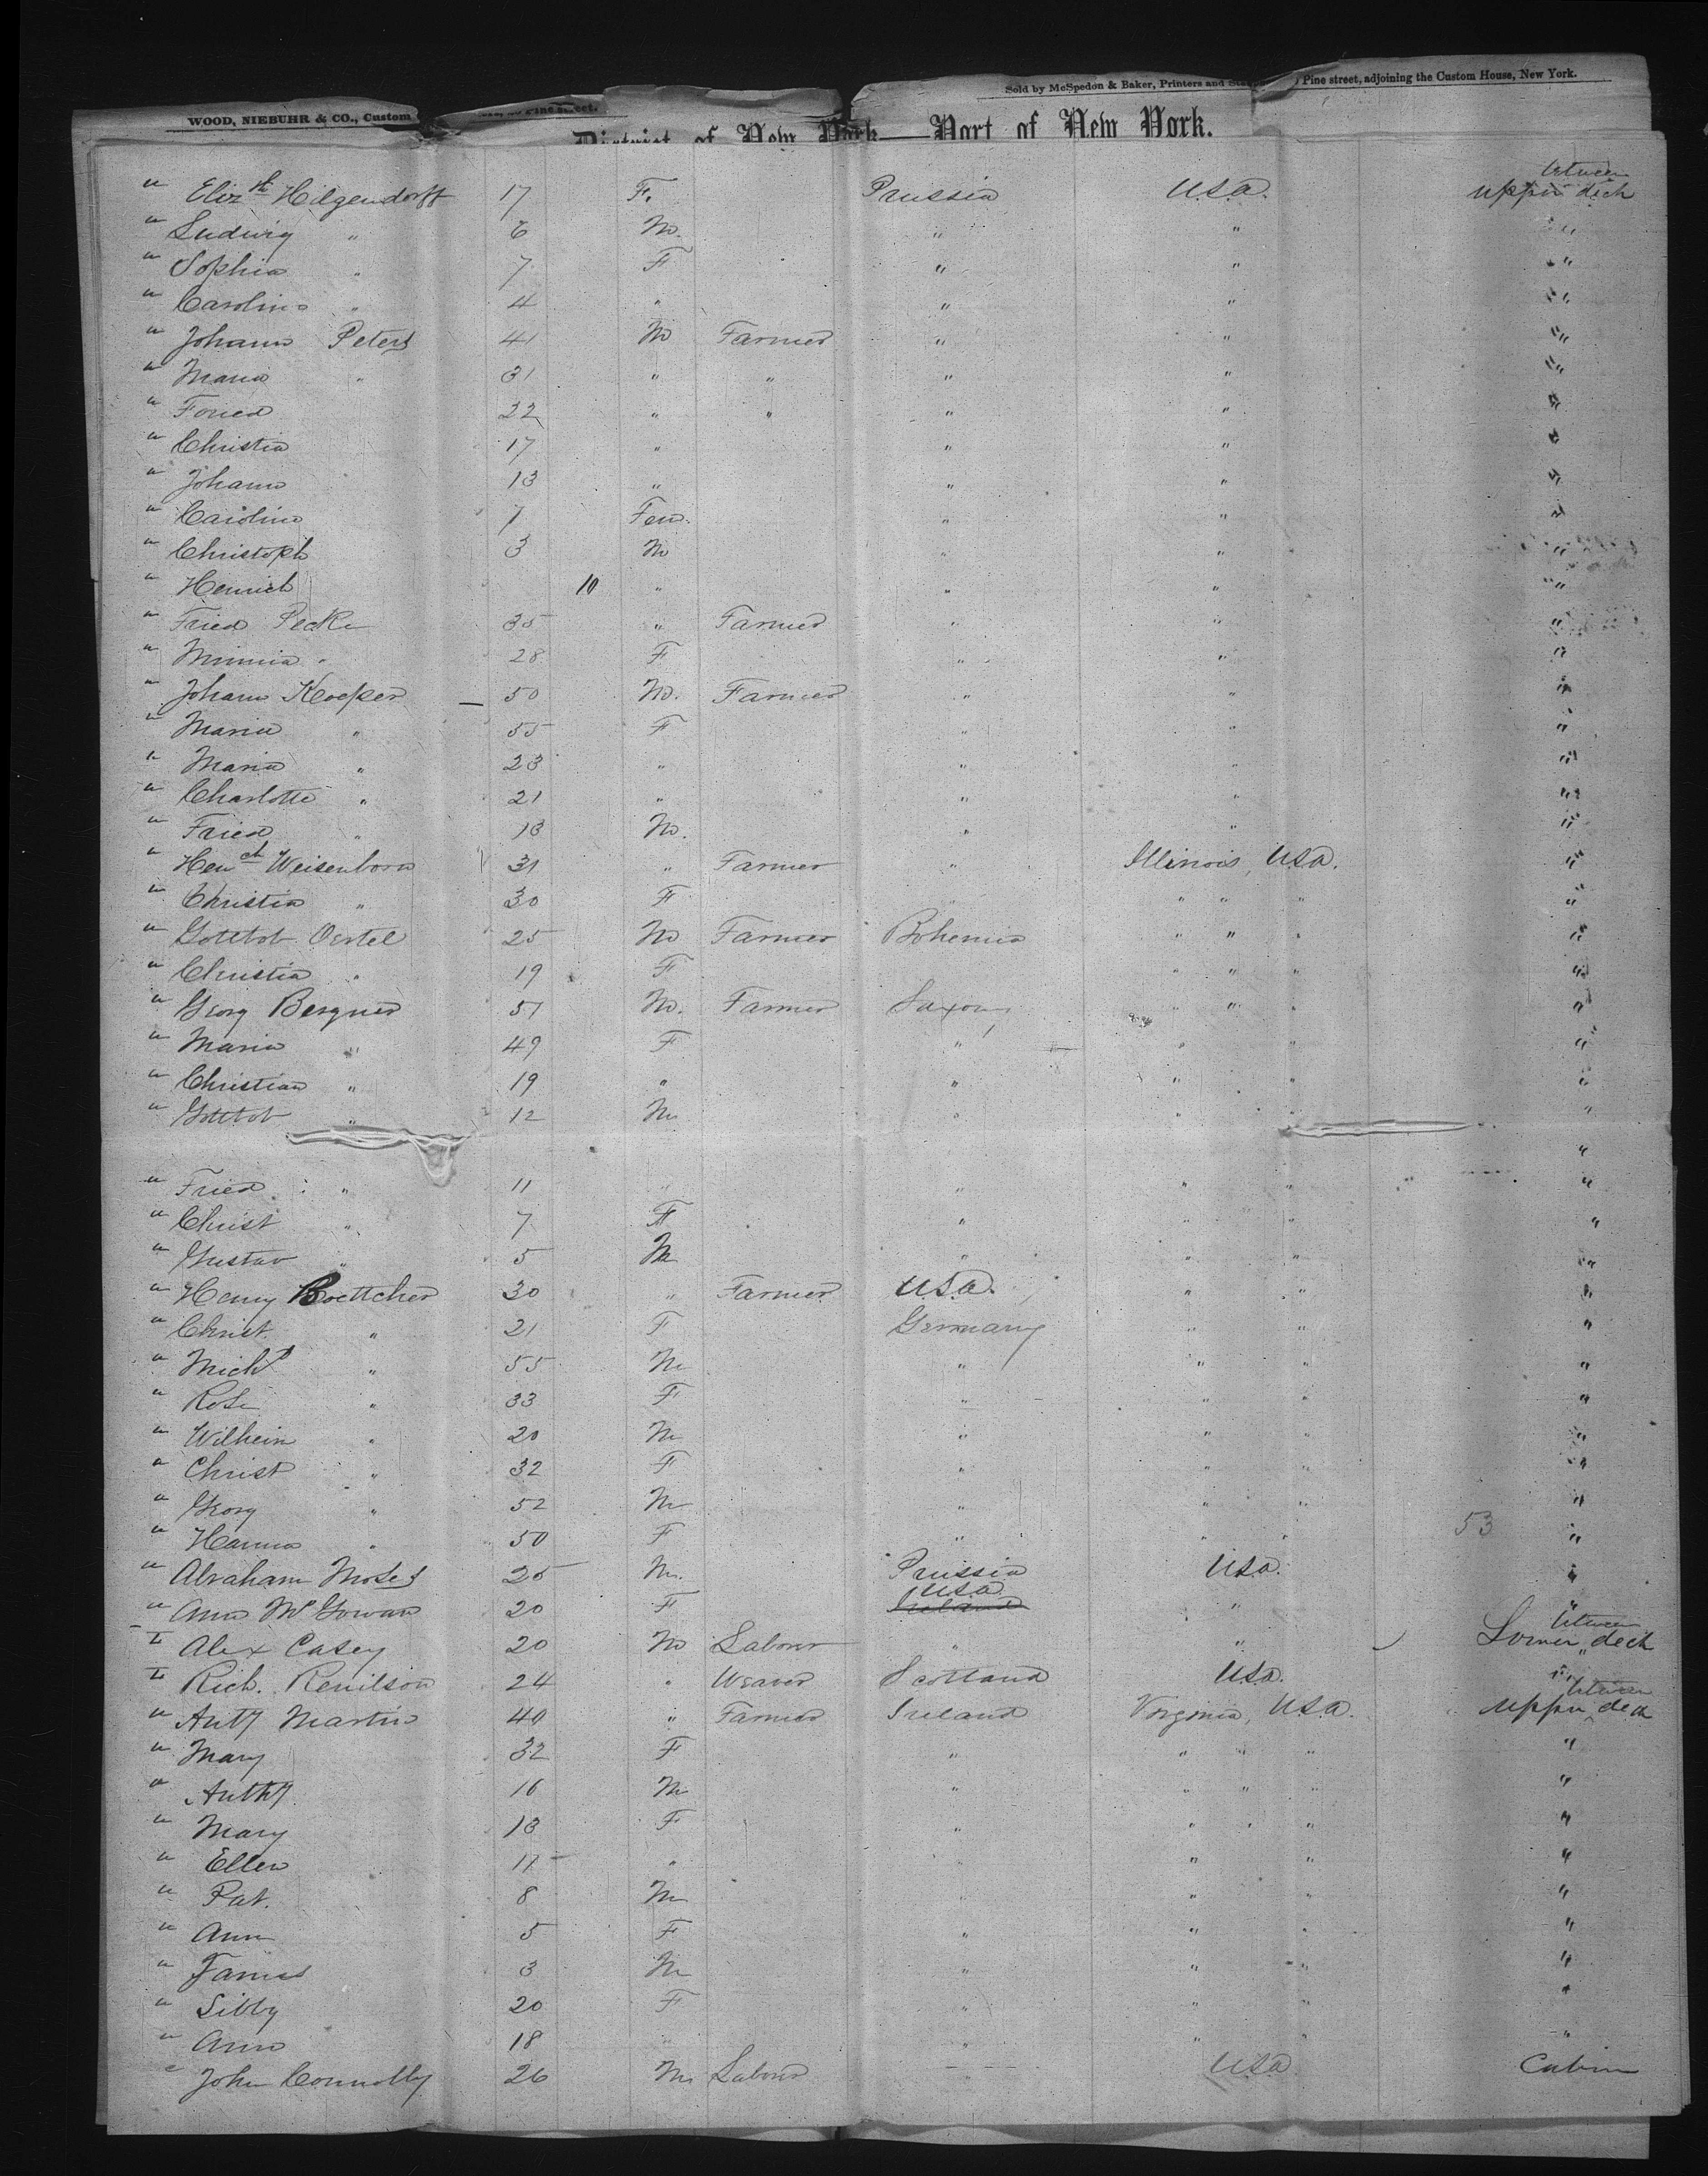 WOOD, NIEBUHR & CO., Custom
Pine street.
Sold by McSpedon & Baker, Printers and Pine street, adjoining the Custom House, New York.
District of New York—Port of New York.
" Elizth Hilgendorff 17 F. Prussia U.S.A. between upper deck
" Ludwig " 6 M. " " "
" Sophia " 7 F " " "
" Carolina " 4 " " " "
" Johann Peters 41 M Farmer " " "
" Maria " 31 " " " " "
" Fried 22 " " " " "
" Christia 17 " " " "
" Johann 13 " " " "
" Carolina 7 Fem. " " "
" Christoph 3 M " " "
" Henrich 10 " " " "
" Fried Pecke 35 " Farmer " " "
" Minnia " 28 F " " "
" Johann Kloeper 50 M. Farmer " " "
" Maria " 55 F " " "
" Maria " 23 " " " "
" Charlotte " 21 " " " "
" Fried " 13 M. " " "
" Hench Weisenborn 31 " Farmer " Illinois, U.S.A. "
" Christia " 30 F " " " " "
" Gottlob Oertel 25 M Farmer Bohemia " " " "
" Christia " 19 F " " " "
" Georg Bergner 51 M. Farmer Saxony " " " "
" Maria " 49 F " " " "
" Christian " 19 " " " " "
" Gottlob " 12 M " " " "
"
" Fried " 11 " " " " "
" Christ " 7 F " " " "
" Gustav " 5 M " " " "
" Henry Boettcher 30 " Farmer U.S.A. " " "
" Christ. " 21 F Germany " " "
" Michl " 55 M " " " "
" Rosi " 33 F " " " "
" Wilhein " 20 M " " " "
" Christ " 32 F " " " "
" Georg " 52 M " " " "
" Hanna " 50 F " " " 53 "
" Abraham Moses 25 M. Prussia U.S.A. "
" Ann McGowan 20 F U.S.A. Ireland " "
" Alex Casey 20 M Labour " " between Lower deck
" Rich. Renilson 24 " Weaver Scotland U.S.A. "
" Anty Martin 40 " Farmer Ireland Virginia, U.S.A. between upper deck
" Mary 32 F " " " " "
" Anthy 16 M " " " " "
" Mary 13 F " " " " "
" Ellen 11 " " " " "
" Pat. 8 M " " "
" Ann 5 F " " " "
" James 3 M " " " "
" Sibby 20 F " " " "
" Ann 18 " " " " "
" John Connolly 26 M Labour " U.S.A. Cabin